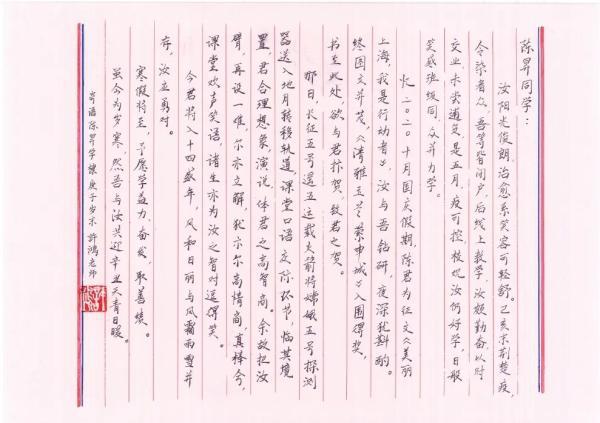 陈昇同学：
汝阳光俊朗，治愈系笑容可轻舒。己亥末荆楚疫，
令染者众，吾等皆闭户，后线上教学，汝颇勤奋，以时
交业，未尝逋负，是五月，疫可控，校悦汝仍好学，日般
笑感班级同，众并力学。
忆二〇二〇十月国庆假期，陈君为征文《美丽
上海，我是行动者》，汝与吾钻研，夜深犹斟酌。
终图文并茂，《清雅玉兰 萦申城》入围得奖，
书至此处，欲与君抃贺，致君之贺。
那日，长征五号遥五运载火箭将嫦娥五号探测
器送入地月转移轨道，课堂口语交际环节，临其境
置，君合理想象，演说，体君之高智商。余故把汝
臂，再设一难，尔亦立解，犹亦尔高情商，真棒兮，
课堂欢声笑语，诸生亦为汝之智对逗得笑。
今君将入十四盛年，风和日丽与风霜雨雪并
存，汝立勇对。
寒假将至，予愿学益力，奋发，取善绩。
虽今为岁寒，然吾与汝共迎辛丑天青日暖。
寄语陈昇学棣 庚子岁末 許鴻老师